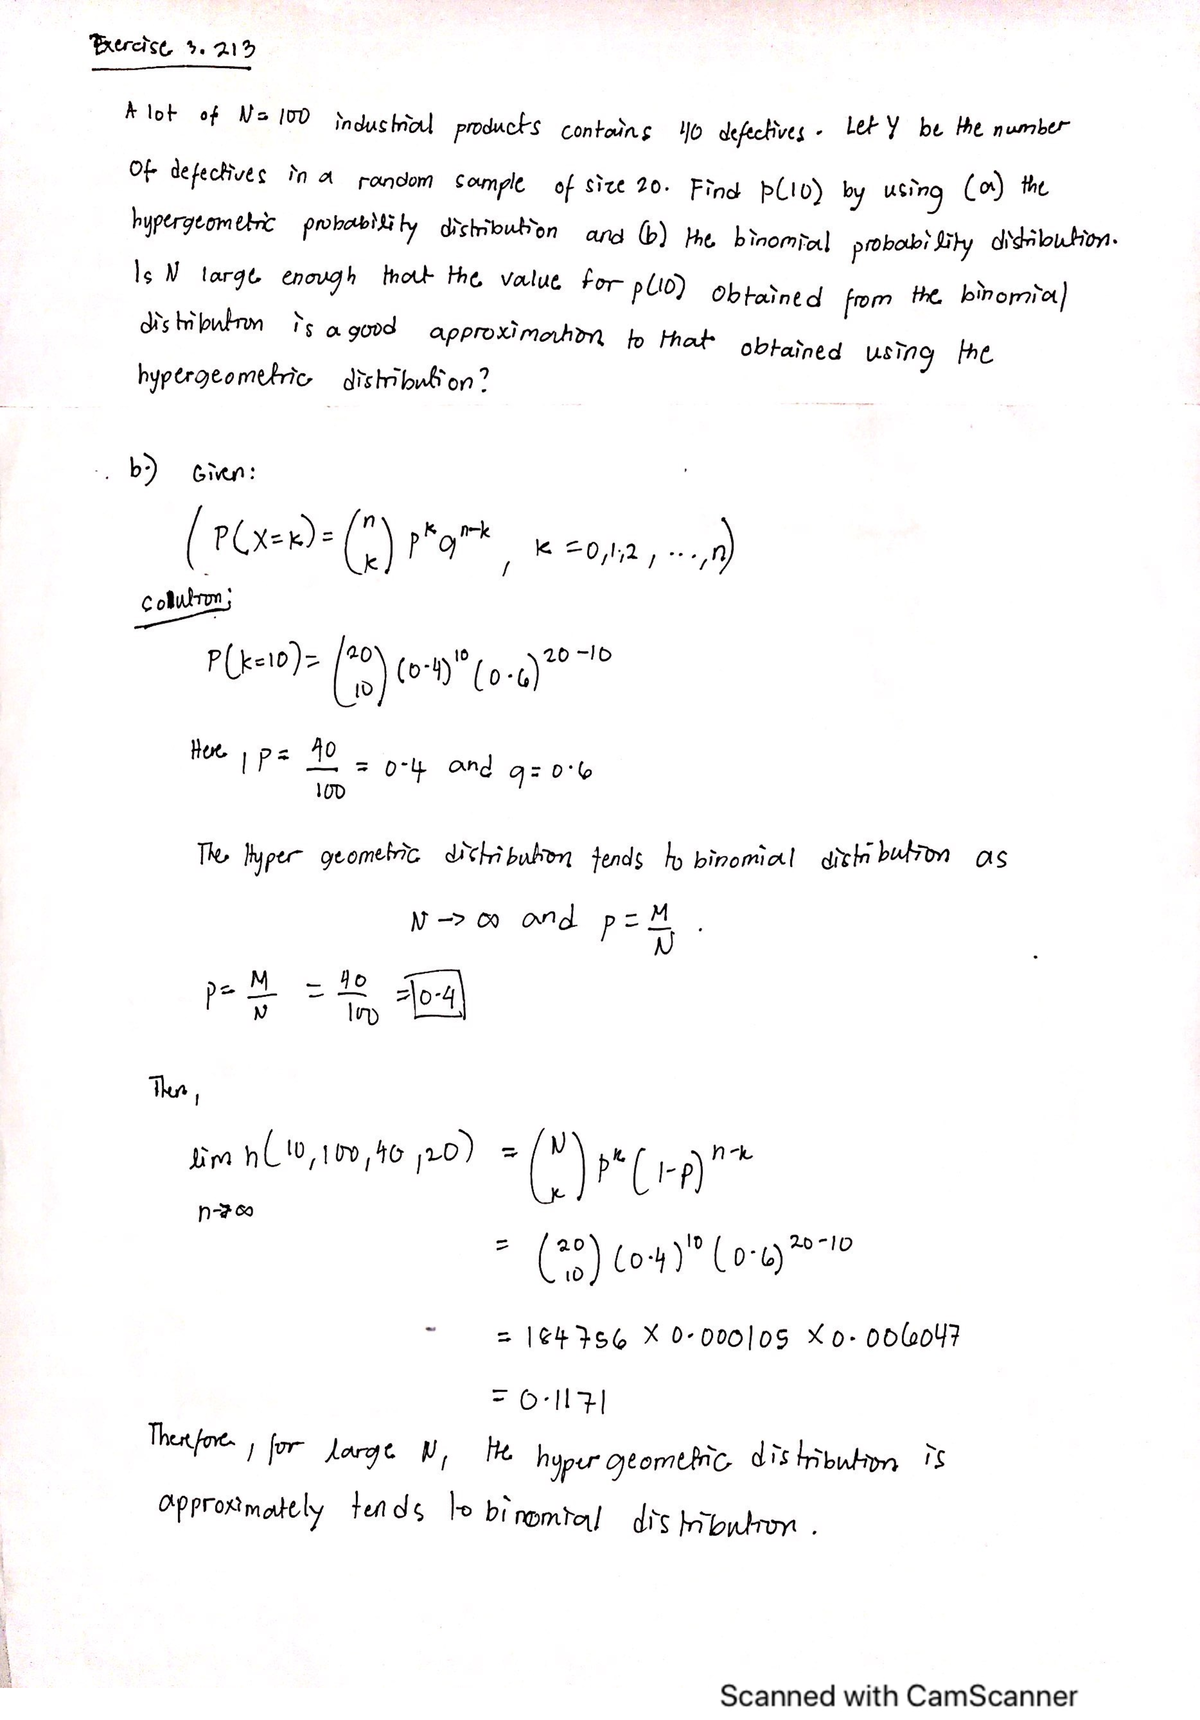 Exercise 3.213
A lot of N = 100 industrial products contains 40 defectives. Let Y be the number
Of defectives in a random sample of size 20. Find p(10) by using (a) the
hypergeometric probability distribution and (b) the binomial probability distribution.
Is N large enough that the value for p(10) obtained from the binomial
distribution is a good approximation to that obtained using the
hypergeometric distribution?
b.) Given:
( P(X=k) = (n k) p^k q^n-k , k = 0,1,2, ..., n)
Solution;
P(k=10) = (20 10) (0.4)^10 (0.6)^20-10
Here, P = 40/100 = 0.4 and q = 0.6
The Hyper geometric distribution tends to binomial distribution as
N → ∞ and p = M/N .
p = M/N = 40/100 = 0.4
Then,
lim h(10,100,40,20) = (N k) p^k (1-p)^n-k
n→∞
= (20 10) (0.4)^10 (0.6)^20-10
= 184756 × 0.000105 × 0.006047
= 0.1171
Therefore, for large N, the hyper geometric distribution is
approximately tends to binomial distribution.
Scanned with CamScanner